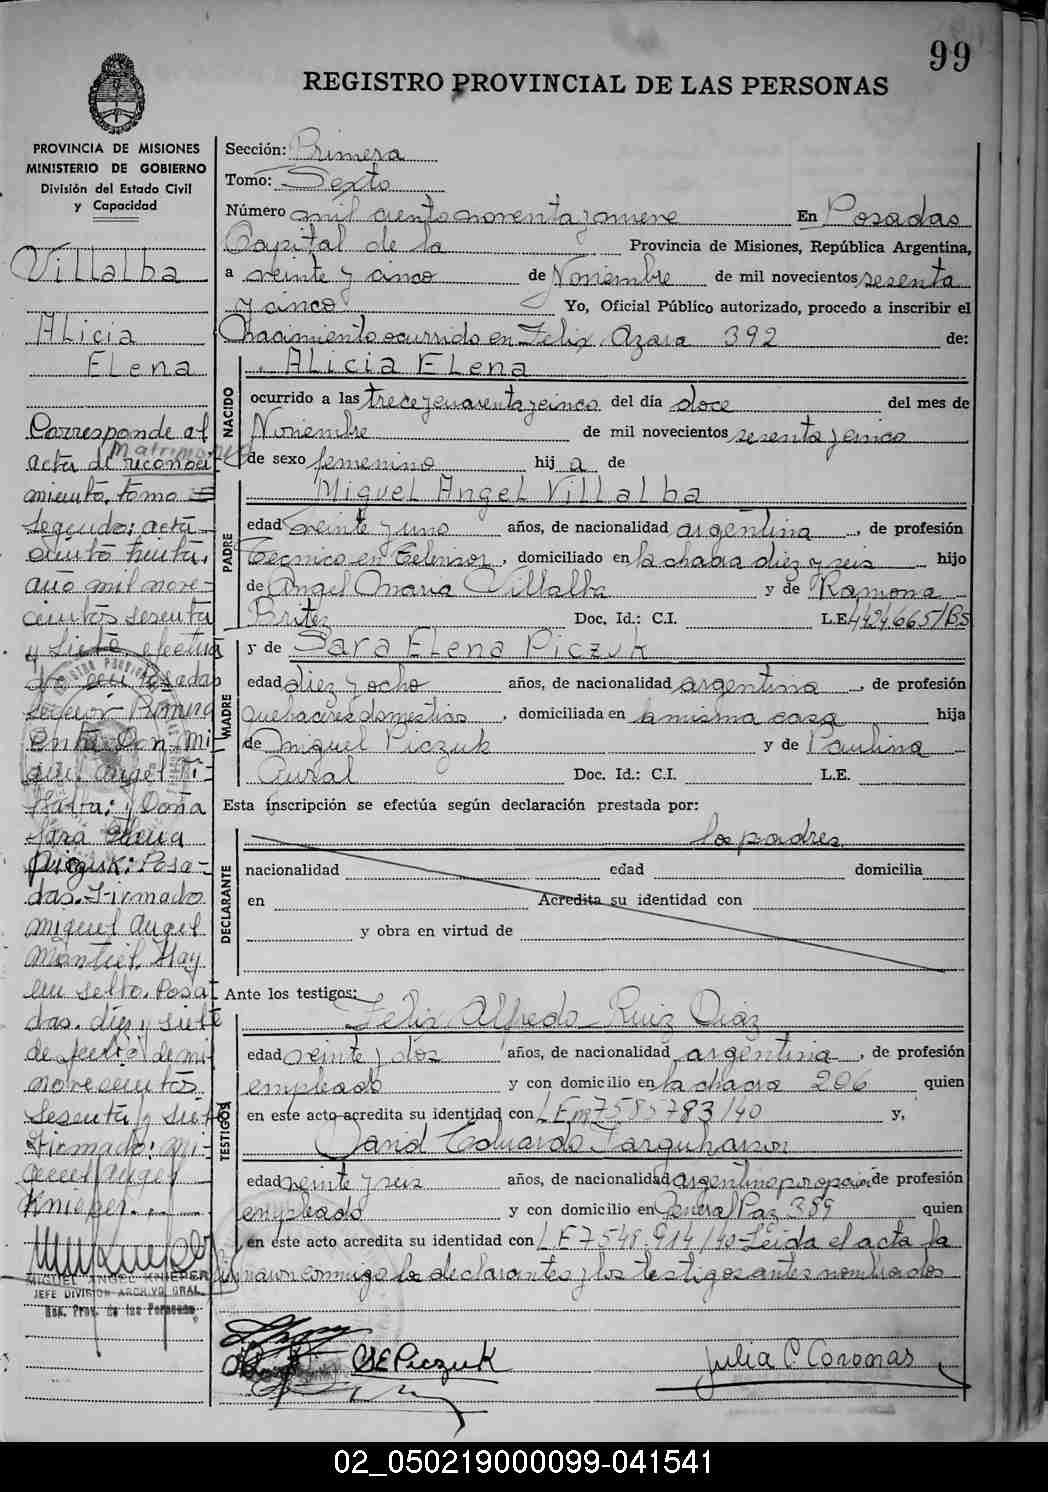 99
REGISTRO PROVINCIAL DE LAS PERSONAS
PROVINCIA DE MISIONES
MINISTERIO DE GOBIERNO
División del Estado Civil
y Capacidad
Villalba
Alicia
Elena
Corresponde al
matrimonio
acta de reconoci
miento, tomo
segundo: acta
ciento treinta,
año mil nove-
cientos sesenta
y siete, efectua
do en Posadas
sección Primera
entre Don Mi
guel Angel Vi-
llalba: y Doña
Sara Elena
Piczuk: Posa-
das. Firmado
Miguel Angel
Montiel. Hay
un sello. Posa
das. diez y siete
de de mil
novecientos
sesenta y siete
Firmado: Mi-
guel Angel
Knieper.
MIGUEL ANGEL KNIEPER
JEFE DIVISION ARCHIVO GRAL.
Reg. Prov. de las Personas
Sección: Primera
Tomo: Sexto
Número mil ciento noventa y nueve En Posadas
Capital de la Provincia de Misiones, República Argentina,
a veinte y cinco de Noviembre de mil novecientos sesenta
y cinco Yo, Oficial Público autorizado, procedo a inscribir el
Nacimiento ocurrido en Felix Azara 392 de:
NACIDO
Alicia Elena
ocurrido a las trece y cuarenta y cinco del día doce del mes de
Noviembre de mil novecientos sesenta y cinco
de sexo femenino hij a de
PADRE
Miguel Angel Villalba
edad veinte y uno años, de nacionalidad argentina, de profesión
Tecnico en Televisor, domiciliado en la chacra diez y seis hijo
de Angel Maria Villalba y de Ramona
Britez Doc. Id.: C.I. L.E. 4424665/BS
MADRE
y de Sara Elena Piczuk
edad diez y ocho años, de nacionalidad argentina, de profesión
quehaceres domesticos, domiciliada en la misma casa hija
de Miguel Piczuk y de Paulina
Doc. Id.: C.I. L.E.
Esta inscripción se efectúa según declaración prestada por:
DECLARANTE
los padres
nacionalidad edad domicilia
en Acredita su identidad con
y obra en virtud de
Ante los testigos:
TESTIGOS
Felix Alfredo Ruiz Diaz
edad veinte y dos años, de nacionalidad argentina, de profesión
empleado y con domicilio en la chacra 206 quien
en este acto acredita su identidad con LEm7585783/40 y,
David Eduardo Farquharson
edad veinte y seis años, de nacionalidad argentino de profesión
empleado y con domicilio en General Paz 359 quien
en este acto acredita su identidad con LE7548.914/40-Leida el acta la
firmaron conmigo los declarantes y los testigos antes nombrados
SE Piczuk
Julia C. Coronas
02_050219000099-041541